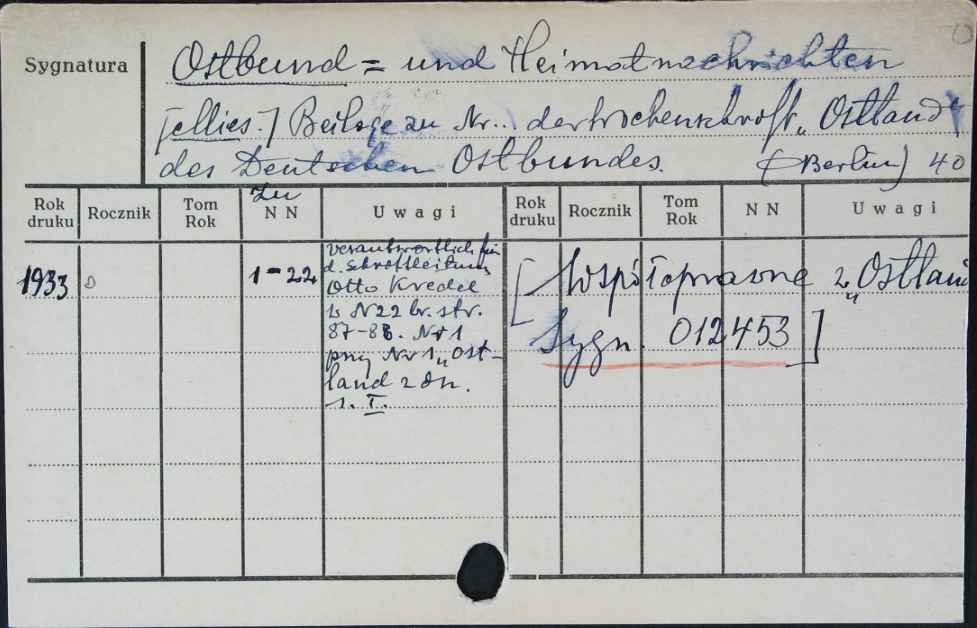 Sygnatura
Ostbund= und Heimatnachrichten
Beilage zu Nr.. der Wochenschrift „Ostland"
des Deutschen Ostbundes. (Berlin) 40
Rok druku Rocznik Tom Rok Zu N N Uwagi Rok druku Rocznik Tom Rok N N Uwagi
verantwortlich für
d. Schriftleitung
1933 1-22 Otto Kredel
N22 br. str.
87-88. Nr 1
przy Nr 1 „Ost-
land z dn.
1. I.
[Współoprawne z „Ostland
Sygn. 012453]